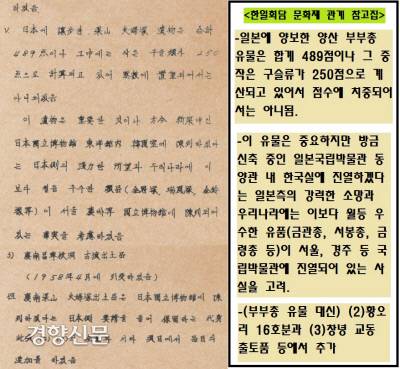 하였음
V. 日本에 讓步한 梁山 夫婦塚 遺物은 合計
489点이나 그中에는 작은 구슬類가 250
点으로 計算되고 있어 点數에 置重되어서는
아니되겠음
이 遺物은 重要한 것이나 方今 新築中인
日本國立博物館 東洋館內 韓國室에 陳列하겠다
는 日本側의 强力한 所望과 우리나라에는 이
보다 월등 우수한 遺品(金冠塚, 瑞鳳塚, 金鈴
塚等)이 서울, 慶州等 國立博物館에 陳列되어
있는 事實을 考慮하였음
3) 慶南昌寧校洞 古墳出土品
(1958年4月에 引受하였음)
慶南梁山 夫婦塚出土品은 日本國立博物館에 陳
列하겠다는 日本側 要請을
追加를 하였음
경향신문
<한일회담 문화재 관계 참고집>
-일본에 양보한 양산 부부총
유물은 합계 489점이나 그 중
작은 구슬류가 250점으로 계
산되고 있어서 점수에 치중되어
서는 아니됨.
-이 유물은 중요하지만 방금
신축 중인 일본국립박물관 동
양관 내 한국실에 진열하겠다
는 일본측의 강력한 소망과
우리나라에는 이보다 월등 우
수한 유품(금관총, 서봉총, 금
령총 등)이 서울, 경주 등 국
립박물관에 진열되어 있는 사
실을 고려.
-(부부총 유물 대신) (2)황오
리 16호분과 (3)창녕 교동
출토품 등에서 추가